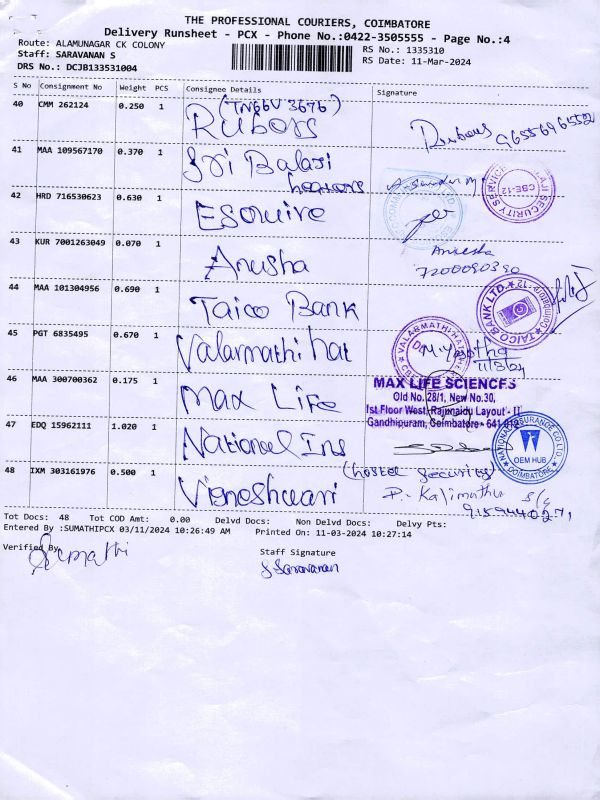 THE PROFESSIONAL COURIERS, COIMBATORE
Delivery Runsheet - PCX - Phone No.:0422-3505555 - Page No.:4
Route: ALAMUNAGAR CK COLONY
RS No.: 1335310
Staff: SARAVANAN S
RS Date: 11-Mar-2024
DRS No.: DCJB133531004
S No Consignment No Weight PCS Consignee Details Signature
40 CMM 262124 0.250 1 (TN66V3676)
Rubors Rubors 9655696552
41 MAA 109567170 0.370 1 Sri Balaji
SECURITY SERVICE CBE-12
42 HRD 716530623 0.630 1 Esquire
43 KUR 7001263049 0.070 1 Anusha Anusha
7200090390
44 MAA 101304956 0.690 1 Taico Bank TAICO BANK LTD. COIMBATORE-12
45 PGT 6835495 0.670 1 Valarmathi hat VALARMATHI
11/3/24
46 MAA 300700362 0.175 1 Max Life MAX LIFE SCIENCES
Old No. 28/1, New No.30,
1st Floor West, Rajinaidu Layout - II
Gandhipuram, Coimbatore - 641 012
47 EDQ 15962111 1.020 1 National Ins NATIONAL INSURANCE CO. LTD. OEM HUB COIMBATORE
(hostel security)
48 IXM 303161976 0.500 1 Vigneshwari P. Kalimuthu S/G
Tot Docs: 48 Tot COD Amt: 0.00 Delvd Docs: Non Delvd Docs: Delvy Pts:
Entered By :SUMATHIPCX 03/11/2024 10:26:49 AM Printed On: 11-03-2024 10:27:14
Verified By Sumathi
Staff Signature
S Saravanan